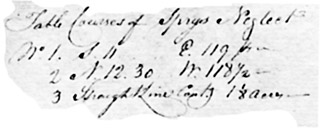 Table Courses of Spryes Neglect
No 1. S. 11 E. 119 ps
2 N. 12.30 W. 118 1/2
3 Straight Line Cont.g 1 1/8 acres